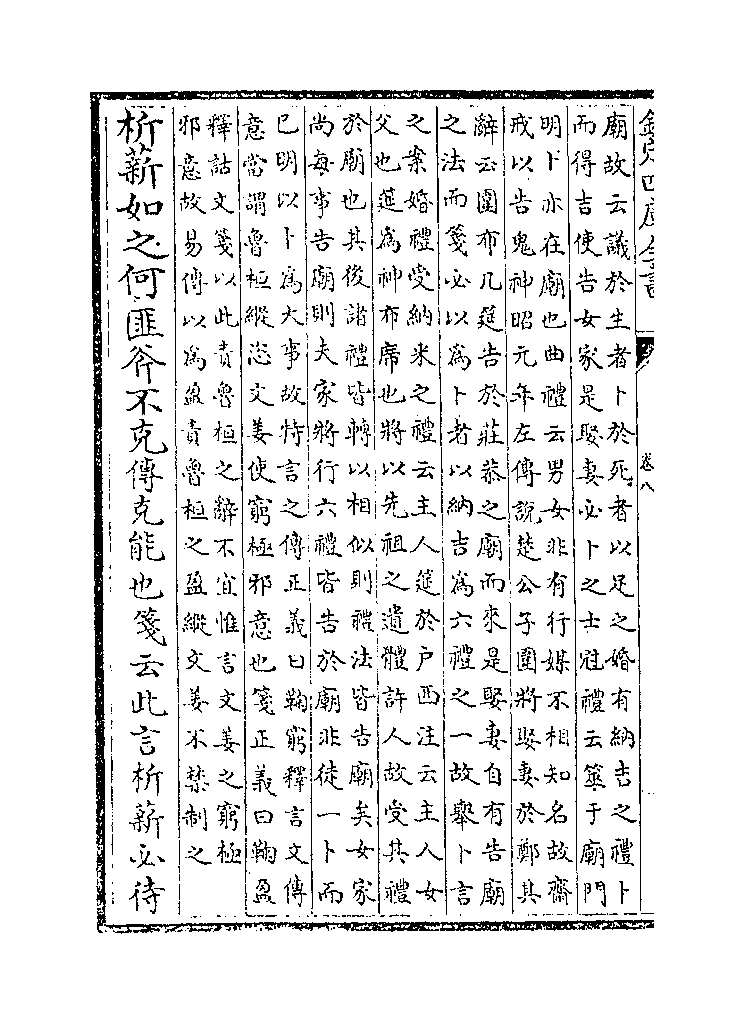 欽定四庫全書
卷八
廟故云議於生者卜於死者以足之婚有納吉之禮卜
而得吉使告女家是娶妻必卜之士冠禮云筮于廟門
明卜亦在廟也曲禮云男女非有行媒不相知名故齋
戒以告鬼神昭元年左傳說楚公子圍將娶妻於鄭其
辭云圍布几筵告於莊恭之廟而來是娶妻自有告廟
之法而箋必以為卜者以納吉為六禮之一故舉卜言
之案婚禮受納采之禮云主人筵於户西注云主人女
父也筵為神布席也將以先祖之遺體許人故受其禮
於廟也其後諸禮皆轉以相似則禮法皆告廟矣女家
尚每事告廟則夫家將行六禮皆告於廟非徒一卜而
已明以卜為大事故特言之傳正義曰鞠窮釋言文傳
意當謂魯桓縱恣文姜使窮極邪意也箋正義曰鞠盈
釋詁文箋以此責魯桓之辭不宜惟言文姜之窮極
邪意故易傳以為盈責魯桓之盈縱文姜不禁制之
析薪如之何匪斧不克傳克能也箋云此言析薪必待